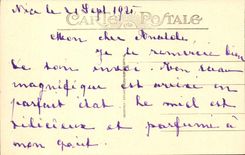 Nice le 21 Sept 1925
CARTE POSTALE
Mon cher
Je te remercie bien
de ton envoi. Ton
magnifique est arrivé en
parfait état le miel est
délicieux et parfumé à
mon goût.